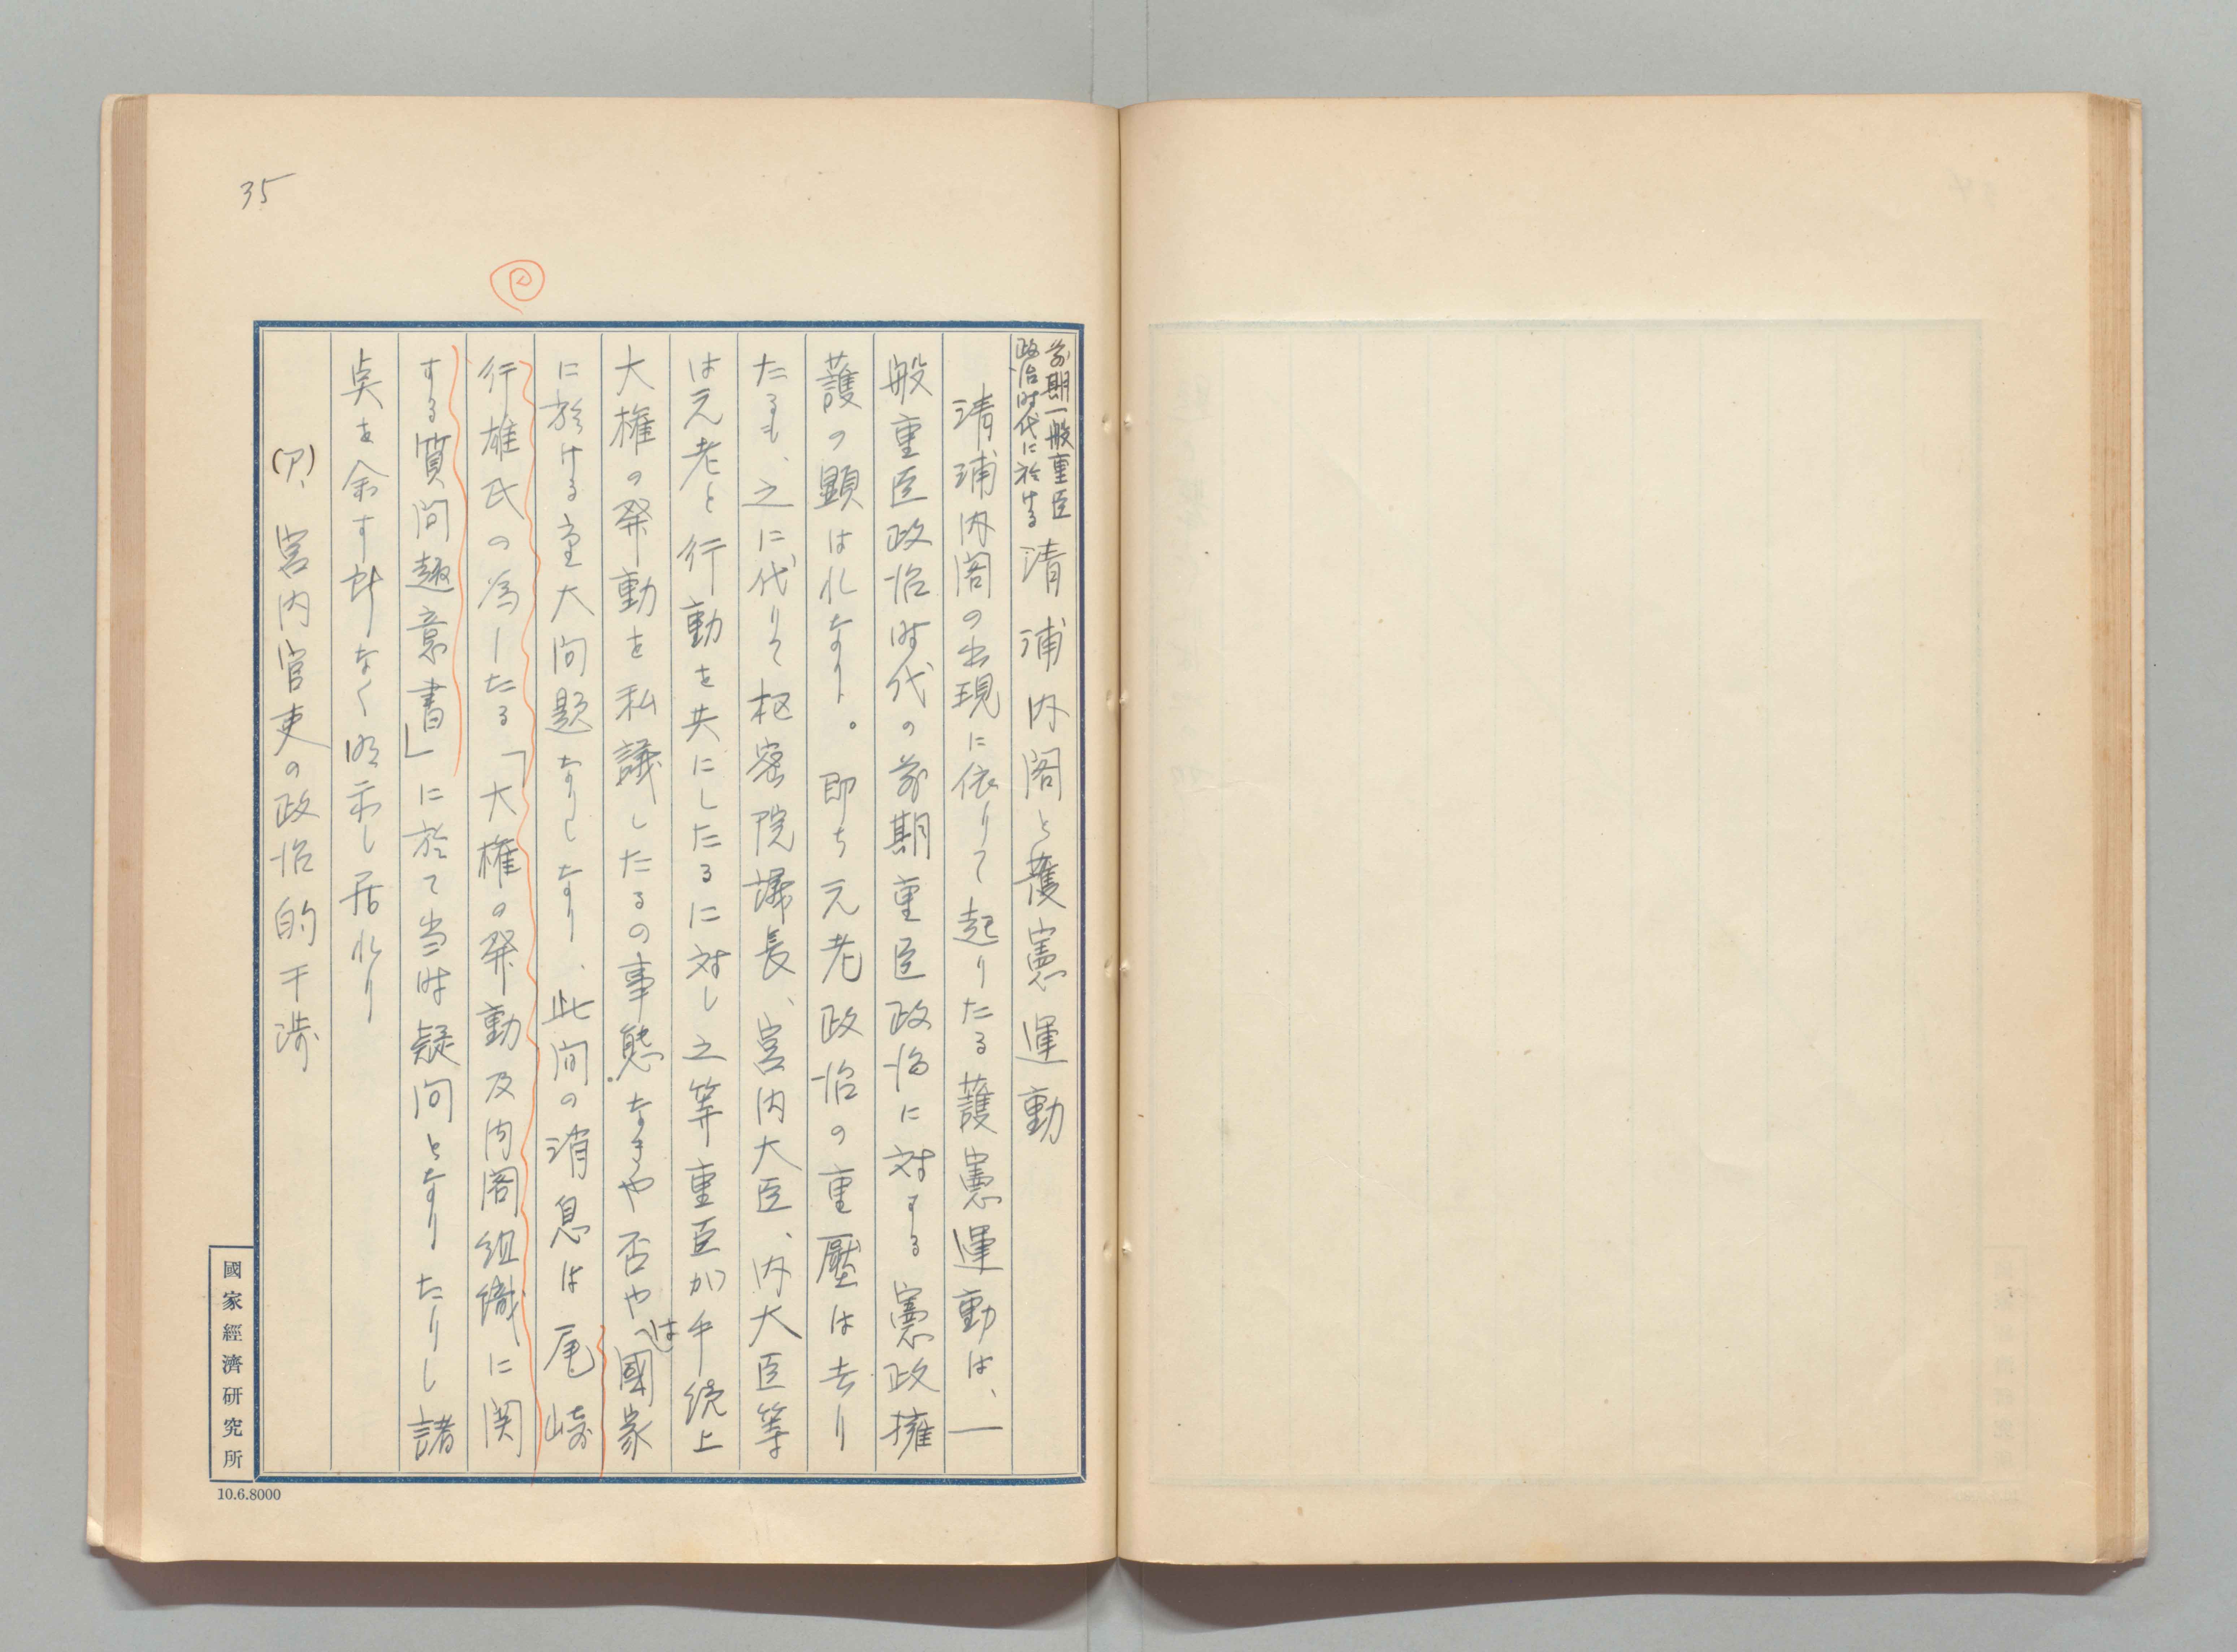 35
前期一般重臣
政治時代に於ける
清浦内閣と護憲運動
清浦内閣の出現に依りて起りたる護憲運動は、一
般重臣政治時代の前期重臣政治に対する憲政擁
護の顕はれなり。即ち元老政治の重壓は去り
たるも、之に代りて枢密院議長、宮内大臣、内大臣等
は元老と行動を共にしたるに対し之等重臣が手続上
大権の発動を私議したるの事態なきや否やは國家
に於ける重大問題なりしなり、此間の消息は尾崎
行雄氏の為したる「大権の発動及内閣組織に関
する質問趣意書」に於て当時疑問となりたりし諸
点を余す所なく明示し居れり
(ア)、宮内官吏の政治的干渉
國家經濟研究所
10.6.8000